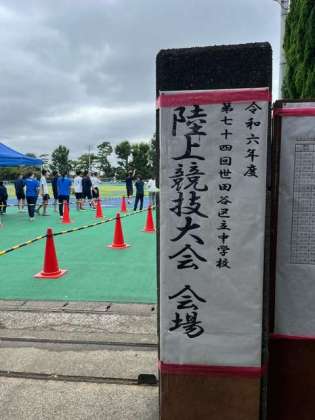 令和六年度
第七十四回世田谷区立中学校
陸上競技大会 会場